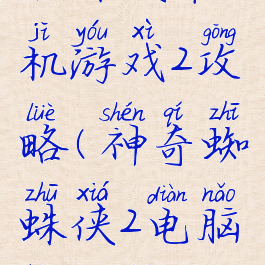 jī yóu xì gōng
机游戏2攻
lüè shén qí zhī
略(神奇蜘
zhū xiá diàn nǎo
蛛侠2电脑